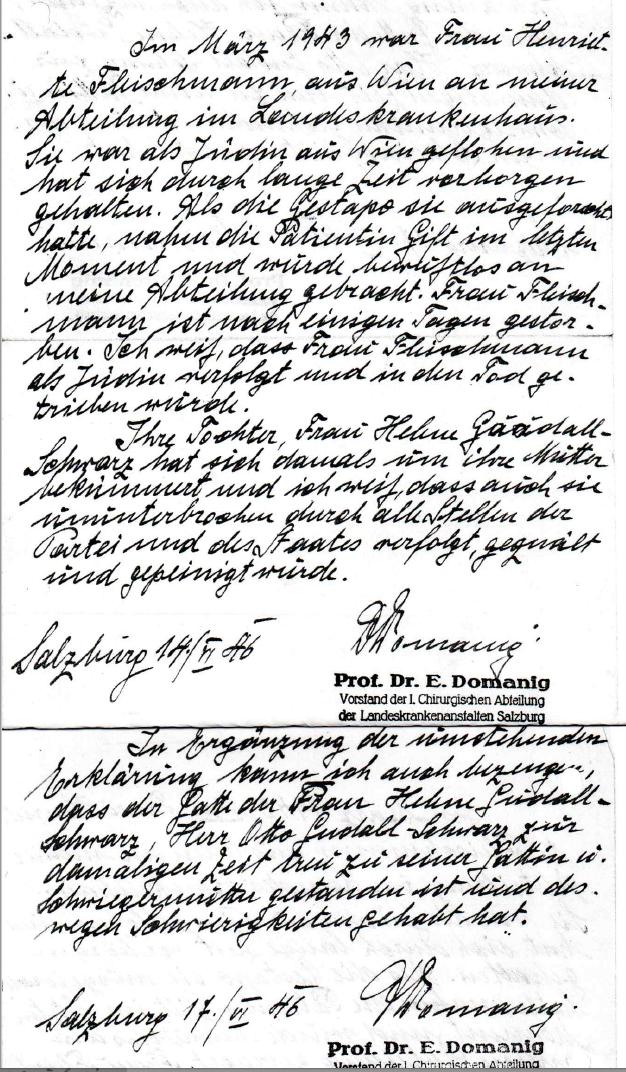 Im März 1943 war Frau Henriet-
te Fleischmann, aus Wien an meiner
Abteilung im Landeskrankenhaus.
Sie war als Jüdin aus Wien geflohen und
hat sich durch lange Zeit verborgen
gehalten. Als die Gestapo sie ausgeforscht
hatte, nahm die Patientin Gift im letzten
Moment und wurde bewußtlos an
meine Abteilung gebracht. Frau Fleisch-
mann ist nach einigen Tagen gestor-
ben. Ich weiß, dass Frau Fleischmann
als Jüdin verfolgt und in den Tod ge-
trieben wurde.
Ihre Tochter, Frau Helene Guudall-
Schwarz hat sich damals um ihre Mutter
bekümmert und ich weiß, dass auch sie
ununterbrochen durch alle Stellen der
Partei und des Staates verfolgt, gequält
und gepeinigt wurde.
Salzburg 14./VI 46 Domanig
Prof. Dr. E. Domanig
Vorstand der I. Chirurgischen Abteilung
der Landeskrankenanstalten Salzburg
In Ergänzung der umstehenden
Erklärung kann ich auch bezeugen,
dass der Gatte der Frau Helene Gudall-
Schwarz, Herr Otto Gudall-Schwarz zur
damaligen Zeit treu zu seiner Gattin u.
Schwiegermutter gestanden ist und des-
wegen Schwierigkeiten gehabt hat.
Salzburg 17./VI 46 Domanig.
Prof. Dr. E. Domanig
Vorstand der I. Chirurgischen Abteilung